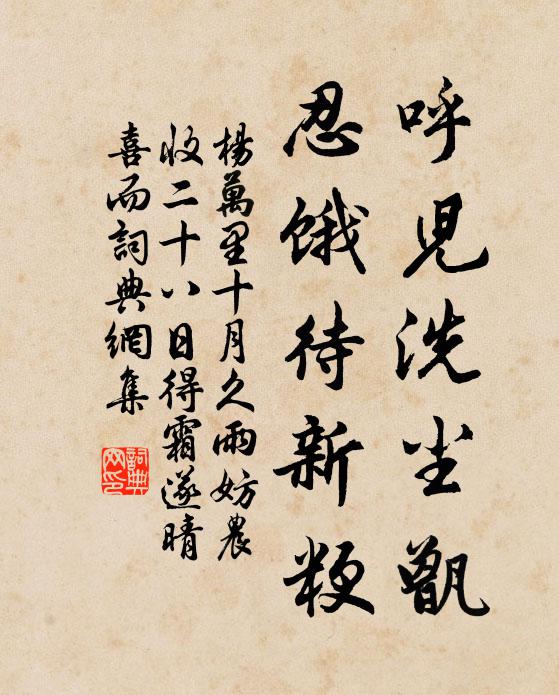 呼児洗尘甑
忍饿待新粳
楊萬里十月久雨妨農
收二十八日得霜遂晴
喜而詞典網集
詞典
网印